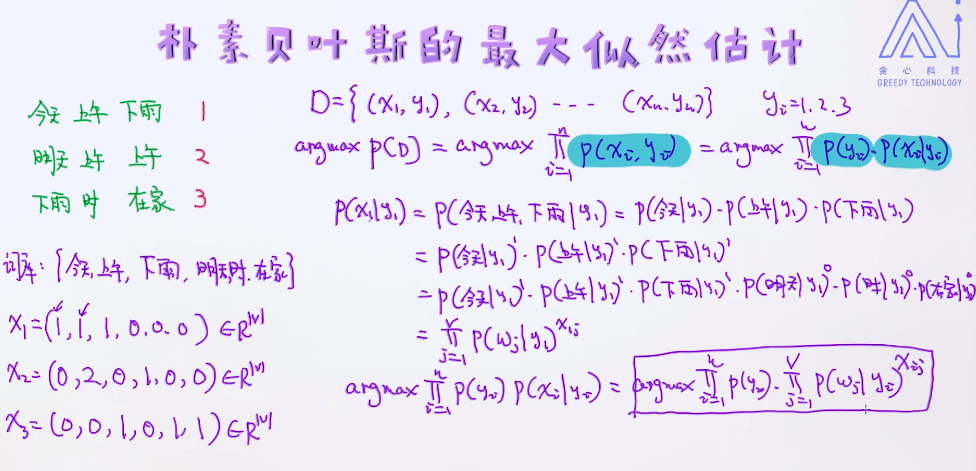 朴素贝叶斯的最大似然估计
贪心科技
GREEDY TECHNOLOGY
今天 上午 下雨 1
明天 上午 上午 2
下雨 时 在家 3
词库: {今天, 上午, 下雨, 明天, 时, 在家}
x₁=(1, 1, 1, 0, 0, 0) ∈R^|V|
x₂=(0, 2, 0, 1, 0, 0) ∈R^|V|
x₃=(0, 0, 1, 0, 1, 1) ∈R^|V|
D={(x₁, y₁), (x₂, y₂) --- (xₙ, yₙ)} yᵢ=1, 2, 3
argmax P(D) = argmax ∏ᵢ₌₁ⁿ P(xᵢ, yᵢ) = argmax ∏ᵢ₌₁ⁿ P(yᵢ)·P(xᵢ|yᵢ)
P(x₁|y₁) = P(今天, 上午, 下雨|y₁) = P(今天|y₁)·P(上午|y₁)·P(下雨|y₁)
= P(今天|y₁)¹·P(上午|y₁)¹·P(下雨|y₁)¹
= P(今天|y₁)¹·P(上午|y₁)¹·P(下雨|y₁)¹·P(明天|y₁)⁰·P(时|y₁)⁰·P(在家|y₁)⁰
= ∏ⱼ₌₁ⱽ P(wⱼ|y₁)^x₁ⱼ
argmax ∏ᵢ₌₁ⁿ P(yᵢ) P(xᵢ|yᵢ) = argmax ∏ᵢ₌₁ⁿ P(yᵢ)·∏ⱼ₌₁ⱽ P(wⱼ|yᵢ)^xᵢⱼ